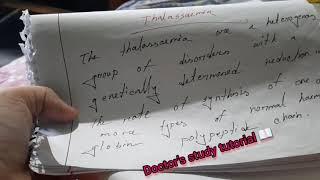 Thalassaemia
The thalassaemia are a heterogenous
group of disorders with a
genetically determined reduction in
the rate of synthesis of one or
more types of normal haemo
globin polypeptide chain.
Doctor's study tutorial